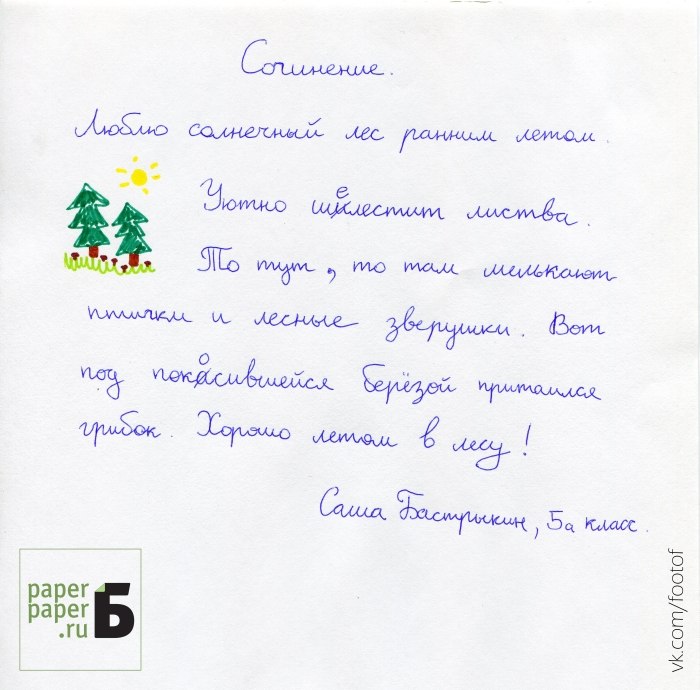 Сочинение.
Люблю солнечный лес ранним летом.
Уютно шелестит листва.
То тут, то там мелькают
птички и лесные зверушки. Вот
под покосившейся берёзой притаился
грибок. Хорошо летом в лесу!
Саша Бастрыкин, 5а класс.
paper
paper
.ru Б
vk.com/footof